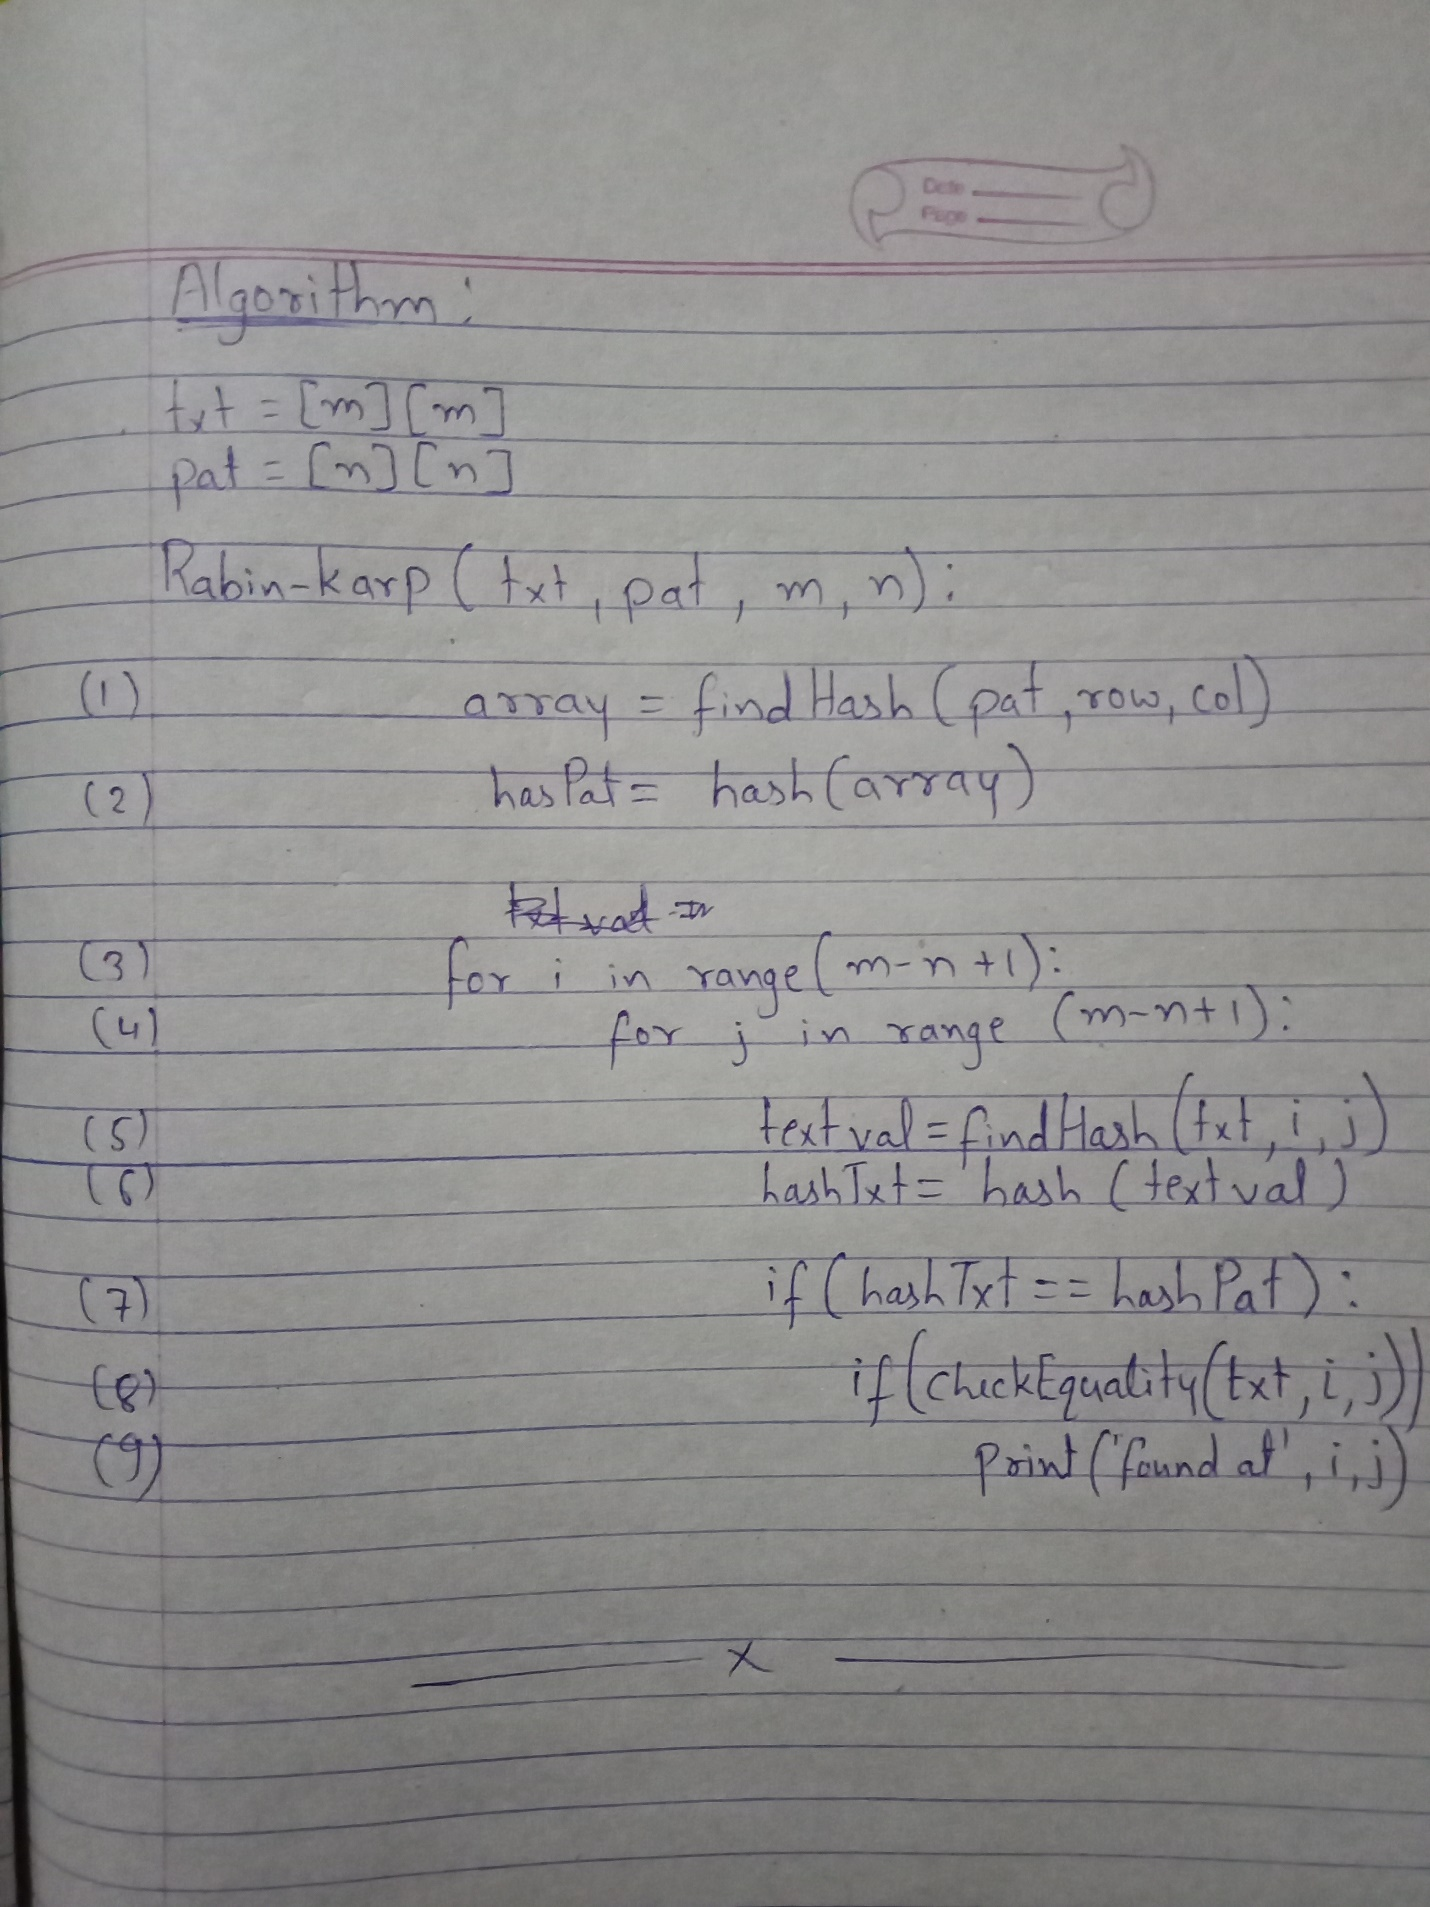 Date
Page
Algorithm:
txt = [m][m]
pat = [n][n]
Rabin-karp(txt, pat, m, n):
(1) array = findHash(pat, row, col)
(2) hasPat = hash(array)
(3) for i in range(m-n+1):
(4) for j in range (m-n+1):
(5) textval = findHash(txt, i, j)
(6) hashTxt = hash (textval)
(7) if(hashTxt == hashPat):
(8) if(checkEquality(txt, i, j))
(9) print('found at', i, j)
x